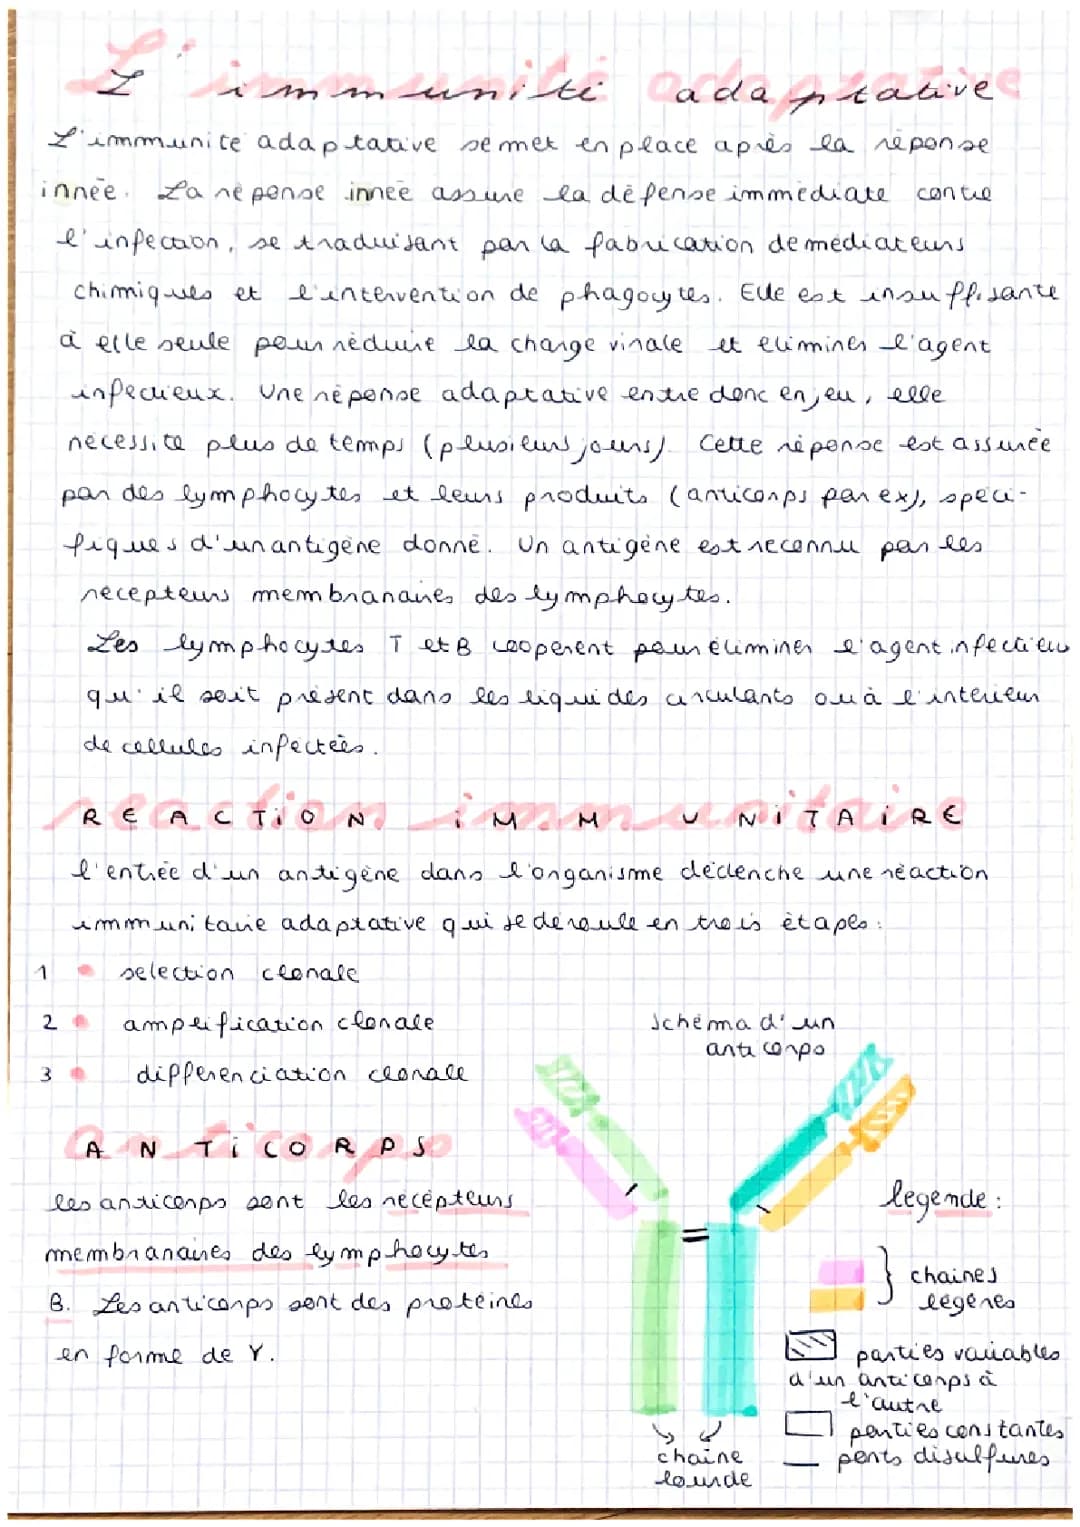 L'immunité adaptative
L'immunité adaptative se met en place après la réponse
innée. La réponse innée assure la défense immédiate contre
l'infection, se traduisant par la fabrication de médiateurs
chimiques et l'intervention de phagocytes. Elle est insuffisante
à elle seule pour réduire la charge virale et éliminer l'agent
infectieux. Une réponse adaptative entre donc en jeu, elle
nécessite plus de temps (plusieurs jours). Cette réponse est assurée
par des lymphocytes et leurs produits (anticorps par ex), spéci-
fiques d'un antigène donné. Un antigène est reconnu par les
récepteurs membranaires des lymphocytes.
Les lymphocytes T et B coopèrent pour éliminer l'agent infectieux
qu'il soit présent dans les liquides circulants ou à l'intérieur
de cellules infectées.
REACTION IMMUNITAIRE
l'entrée d'un antigène dans l'organisme déclenche une réaction
immunitaire adaptative qui se déroule en trois étapes :
1 • selection clonale
2 • amplification clonale
3 • différenciation clonale
Schéma d'un
anticorps
ANTICORPS
les anticorps sont les récépteurs
membranaires des lymphocytes
B. Les anticorps sont des protéines
en forme de Y.
légende :
chaines
légères
parties variables
d'un anticorps à
l'autre
parties constantes
ponts disulfures
chaîne
lourde